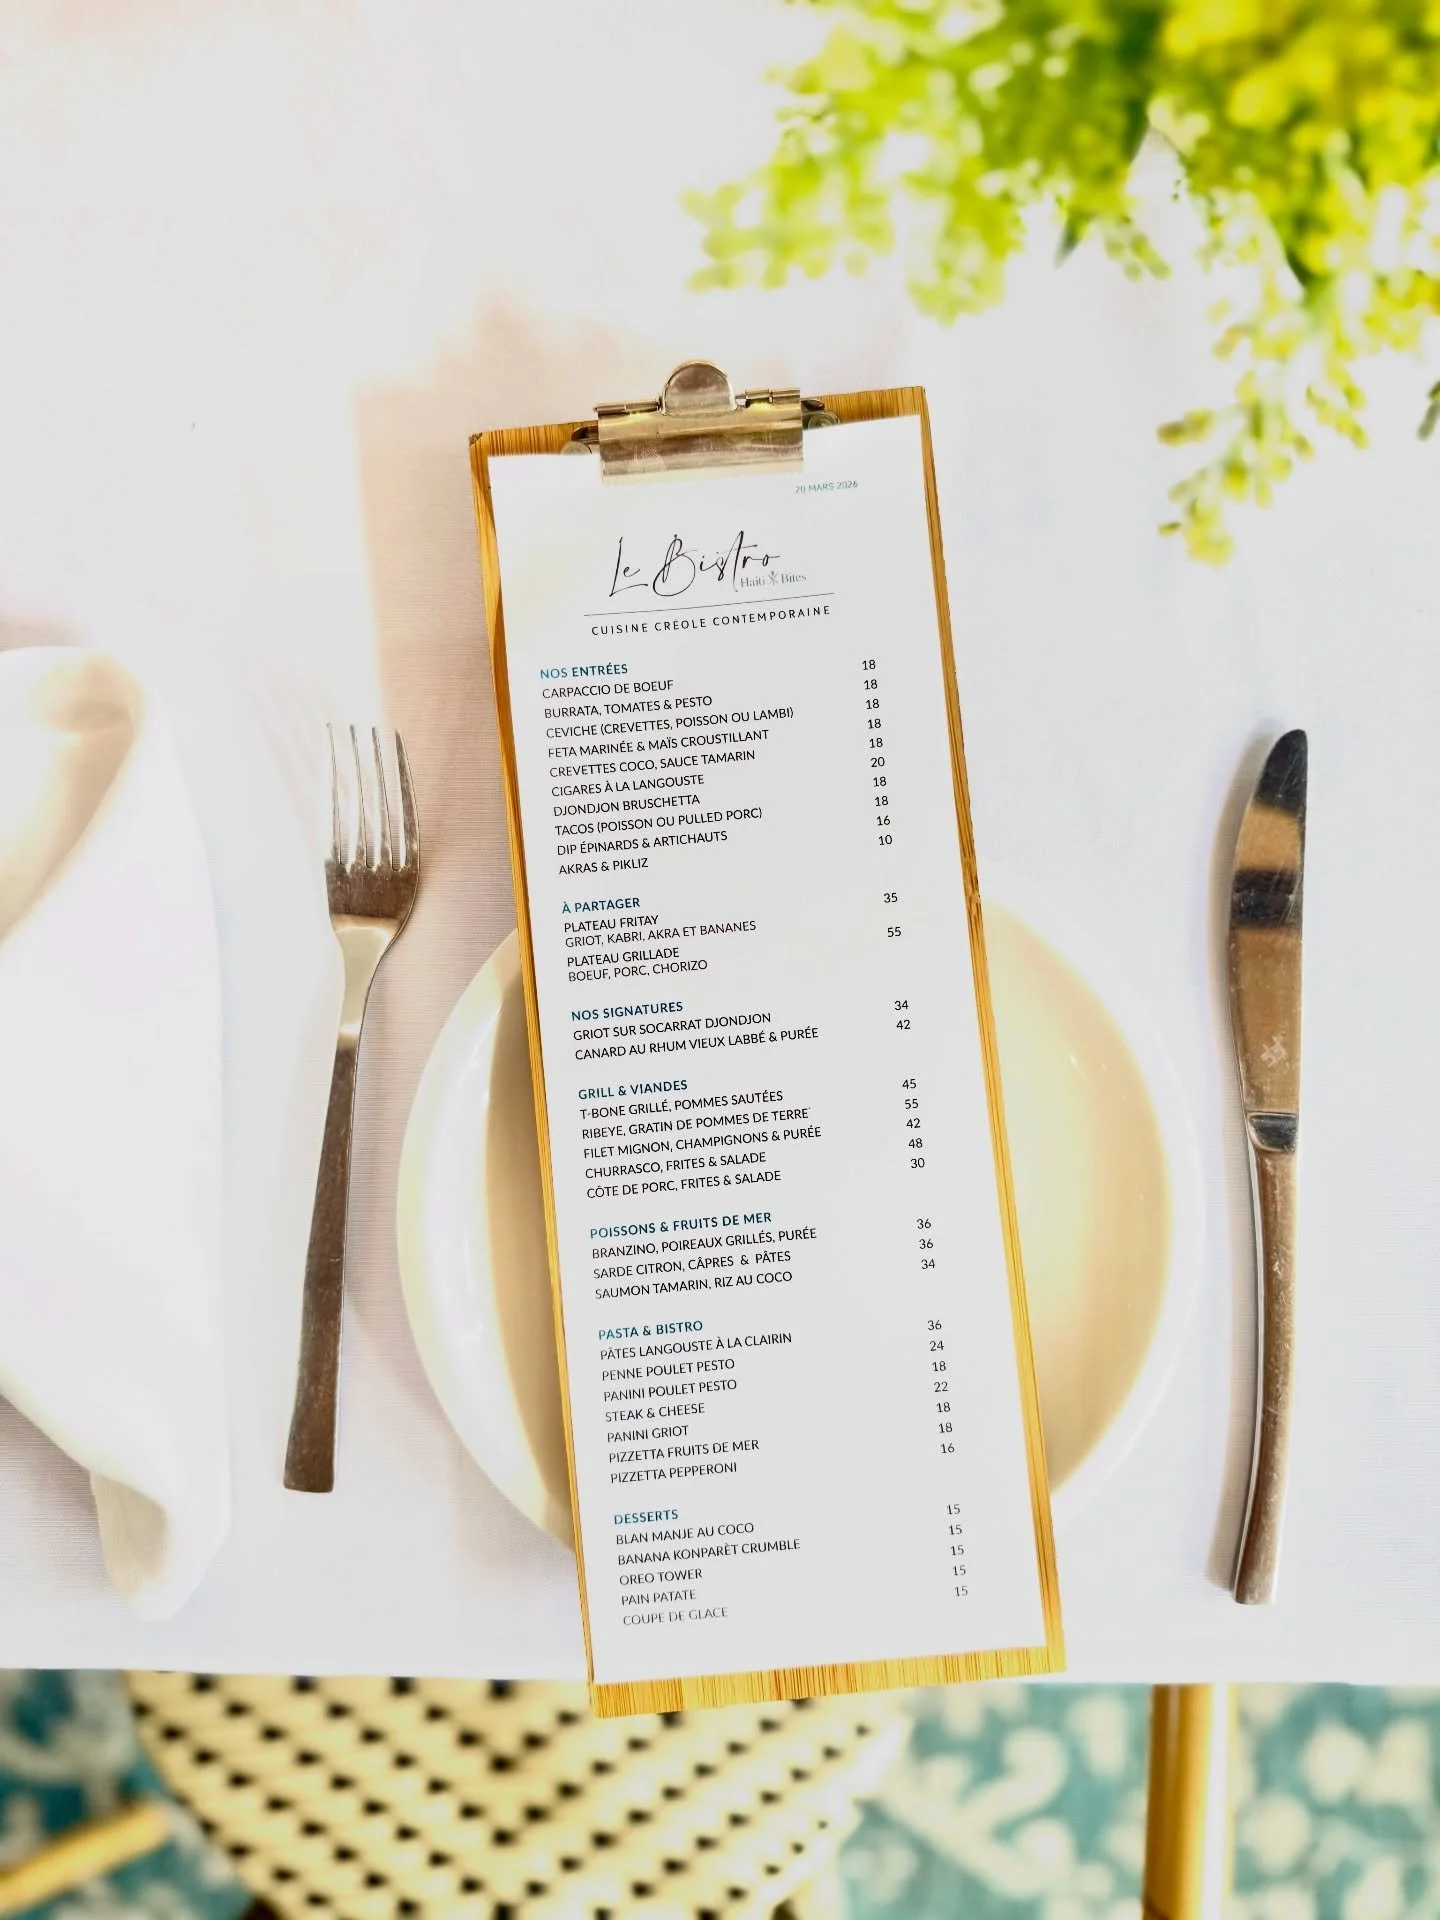 20 MARS 2026
Le Bistro
Haiti Bites
CUISINE CRÉOLE CONTEMPORAINE
NOS ENTRÉES
CARPACCIO DE BOEUF 18
BURRATA, TOMATES & PESTO 18
CEVICHE (CREVETTES, POISSON OU LAMBI) 18
FETA MARINÉE & MAÏS CROUSTILLANT 18
CREVETTES COCO, SAUCE TAMARIN 18
CIGARES À LA LANGOUSTE 20
DJONDJON BRUSCHETTA 18
TACOS (POISSON OU PULLED PORC) 18
DIP ÉPINARDS & ARTICHAUTS 16
AKRAS & PIKLIZ 10
À PARTAGER
PLATEAU FRITAY 35
GRIOT, KABRI, AKRA ET BANANES
PLATEAU GRILLADE 55
BOEUF, PORC, CHORIZO
NOS SIGNATURES
GRIOT SUR SOCARRAT DJONDJON 34
CANARD AU RHUM VIEUX LABBÉ & PURÉE 42
GRILL & VIANDES
T-BONE GRILLÉ, POMMES SAUTÉES 45
RIBEYE, GRATIN DE POMMES DE TERRE 55
FILET MIGNON, CHAMPIGNONS & PURÉE 42
CHURRASCO, FRITES & SALADE 48
CÔTE DE PORC, FRITES & SALADE 30
POISSONS & FRUITS DE MER
BRANZINO, POIREAUX GRILLÉS, PURÉE 36
SARDE CITRON, CÂPRES & PÂTES 36
SAUMON TAMARIN, RIZ AU COCO 34
PASTA & BISTRO
PÂTES LANGOUSTE À LA CLAIRIN 36
PENNE POULET PESTO 24
PANINI POULET PESTO 18
STEAK & CHEESE 22
PANINI GRIOT 18
PIZZETTA FRUITS DE MER 18
PIZZETTA PEPPERONI 16
DESSERTS
BLAN MANJE AU COCO 15
BANANA KONPARÈT CRUMBLE 15
OREO TOWER 15
PAIN PATATE 15
COUPE DE GLACE 15